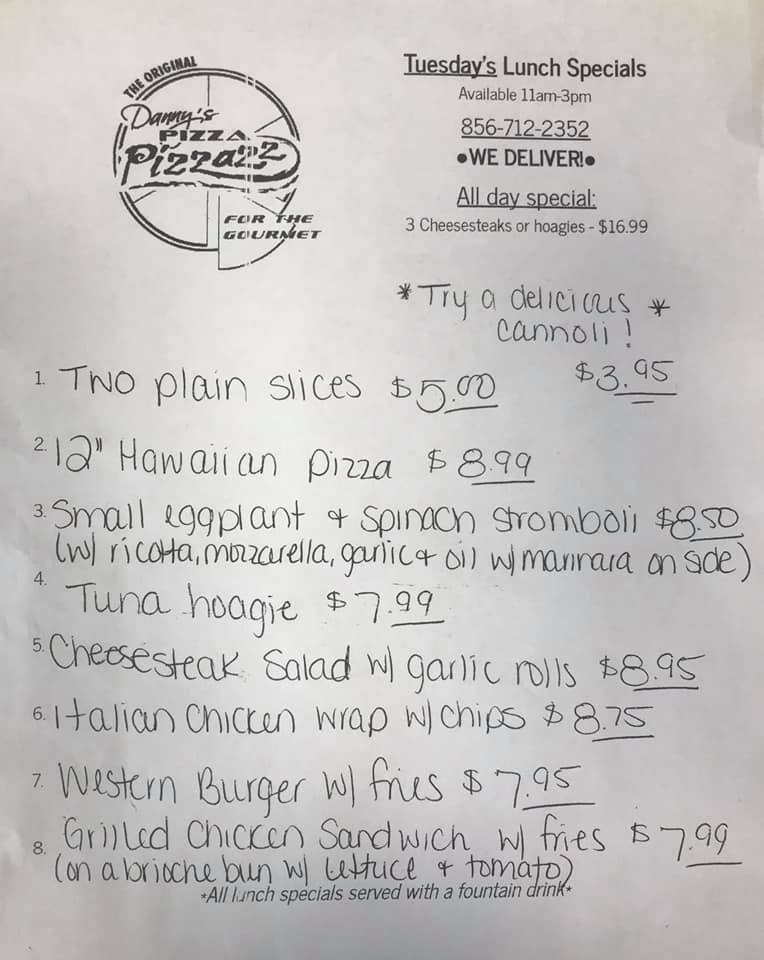 THE ORIGINAL
Danny's
PIZZA
Pizzazz
FOR THE
GOURMET
Tuesday's Lunch Specials
Available 11am-3pm
856-712-2352
•WE DELIVER!•
All day special:
3 Cheesesteaks or hoagies - $16.99
*Try a delicious *
cannoli!
$3.95
1. Two plain slices $5.00
2. 12" Hawaiian pizza $8.99
3. Small eggplant + spinach stromboli $8.50
(w/ ricotta, mozzarella, garlic + oil w/ marinara on side)
4. Tuna hoagie $7.99
5. Cheesesteak Salad w/ garlic rolls $8.95
6. Italian Chicken wrap w/ chips $8.75
7. Western Burger w/ fries $7.95
8. Grilled Chicken Sandwich w/ fries $7.99
(on a brioche bun w/ lettuce + tomato)
*All lunch specials served with a fountain drink*